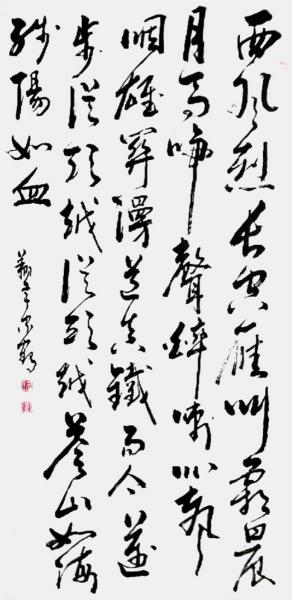 西風烈長空雁叫霜晨
月馬啼聲碎喇叭聲
咽雄關漫道真鐵而今邁
步從頭越從頭越蒼山如海
殘陽如血